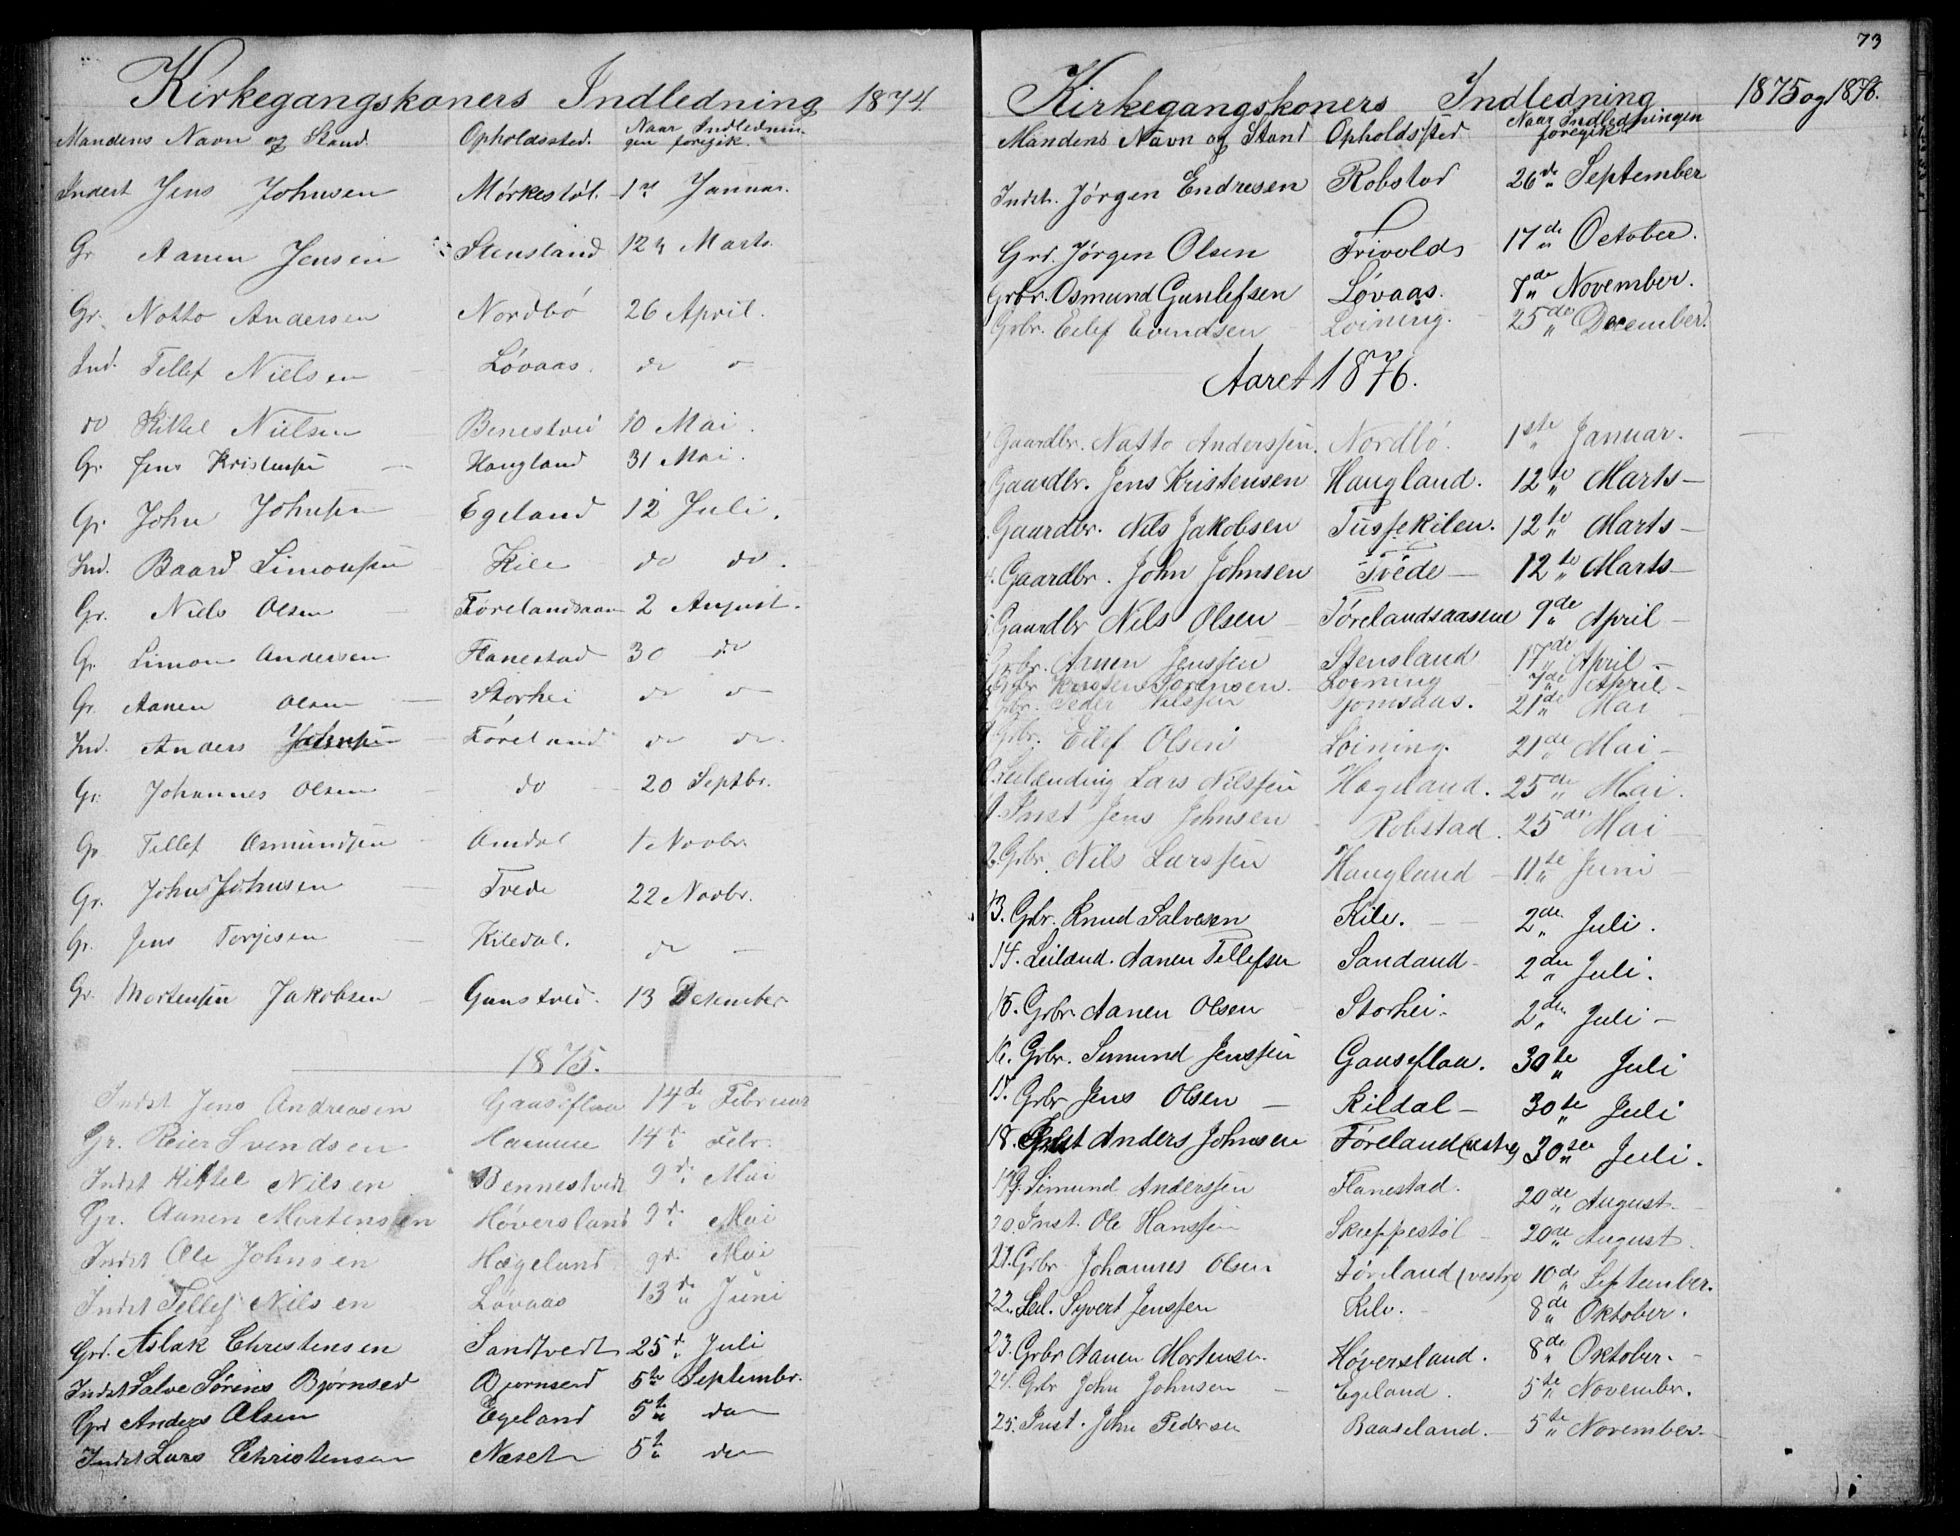 Kirkegangskoners Indledning 1874
Mandens Navn og Stand. Opholdssted. Naar Indlednin-
gen foregik.
Inderst Jens Johnsen Mørkestøl. 1ste Januar.
Gr Aanen Jensen Stensland 12 Marts.
Gr. Notto Andersen Nordbø 26 April.
Ind. Tellef Nielsen Løvaas. do
do Kittel Nielsen Benestved 10 Mai.
Gr Jens Kristensen Haugland 31 Mai.
Gr John Johnsen Egeland 12 Juli.
Ind. Baard Simonsen Kile do do.
Gr. Niels Olsen Førelandsaasen 2 August.
Gr Simon Andersen Flanestad 30 do
Gr. Aanen Olsen Storhei do
Ind. Anders Johnsen Føreland do do
Gr. Johannes Olsen do 20 Septbr.
Gr Tellef Osmundsen Omdal 1 Novbr.
Gr. John Johnsen Tvede 22 Novbr.
Gr. Jens Torjesen Kiledal. do
Gr. Mortensen Jakobsen Gunstved. 13 Desember
1875.
Indst Jens Andreasen Gaaseflaa 14de Februar
Gr. Reier Svendsen Hamme 14de Febr.
Indst Kittel Nilsen Bennestvedt 9de Mai
Gr. Aanen Mortensen Høversland 9de Mai
Indst Ole Johnsen Hægeland 9de Mai
Indst Tellef Nilsen Løvaas 13de Juni
Grd. Aslak Christensen Sandtvedt 25de Juli
Indst Salve Sørens Bjørnsed Bjørnserd 5te Septembr.
Grd Anders Olsen Egeland 5te do
Indst Lars Christensen Næset 5te do
73
Kirkegangskoners Indledning 1875 og 1876.
Mandens Navn og Stand Opholdssted Naar Indledningen
foregik
Indst. Jørgen Endresen Robstad 26de September
Grd. Jørgen Olsen Frivolds 17de October.
Grbr. Osmund Gunlefsen Løvaas. 7de November.
Grbr. Eilef Evindsen Loining. 25de December.
Aaret 1876.
Gaardbr. Natto Anderssen. Nordbø. 1ste Januar.
Gaardbr. Jens Kristensen Haugland. 12te Marts
Gaardbr. Nils Jakobsen Tussekilen. 12te Marts
Gaardbr. John Johnsen Tvede 12te Marts
Gaardbr Nils Olsen Førelandsaasene 9de April
Grbr. Aanen Jenssen Stensland 17de April
Grbr Kristen Sørensen. Loining 7de April
Grbr. Peder Nilssen Gjømsaas. 21de Mai
Grbr. Eilef Olsen Loining. 21de Mai
Leilænding Lars Nilssen Hægeland. 25de Mai.
Inst Jens Johnsen Robstad. 25de Mai
Grbr. Nils Larssen Haugland 11te Juni
13. Grbr. Knud Salvesen Kile. 2den Juli.
14. Leilænd. Aanen Tellefsen Sandand 2den Juli.
15. Grbr. Aanen Olsen Storhei. 2den Juli
16. Grbr. Simund Jenssen Gaaseflaa. 30te Juli
17. Grbr Jens Olsen Kildal 30te Juli
18. Inst Anders Johnsen Føreland (vestre) 30te Juli.
19. Simund Anderssen Flanestad. 20de August.
20. Inst. Ole Hanssen Skreppestøl 20de August
21. Grbr. Johannes Olsen Føreland (vestre) 10de September.
22. Leil. Syvert Jenssen Kile. 8de Oktober.
23. Grbr Aanen Mortensen Høversland. 8de Oktober.
24. Grbr John Johnsen Egeland. 5te November.
25. Inst. John Pedersen Baaseland. 5te November.